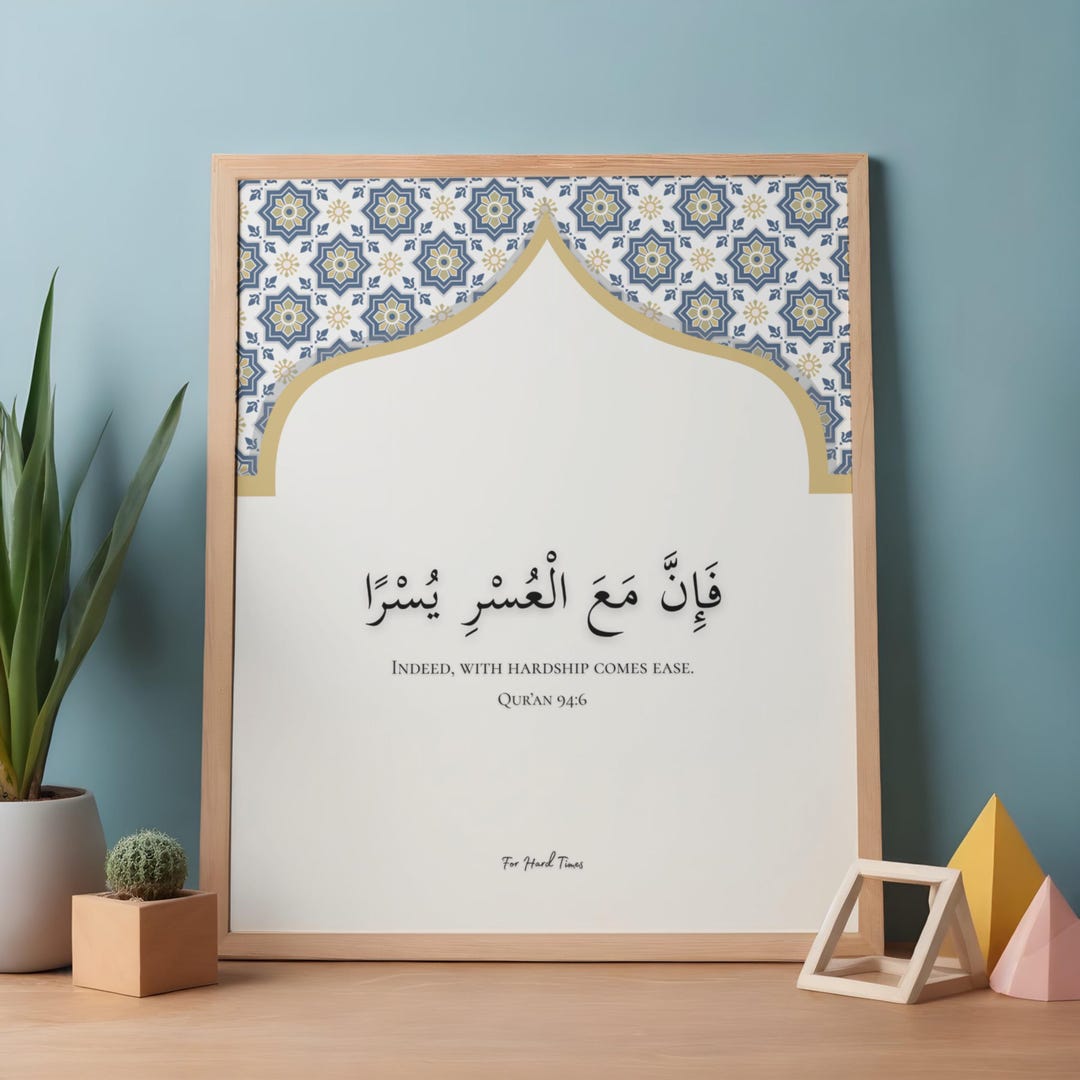 فَإِنَّ مَعَ الْعُسْرِ يُسْرًا
Indeed, with hardship comes ease.
Qur'an 94:6
For Hard Times